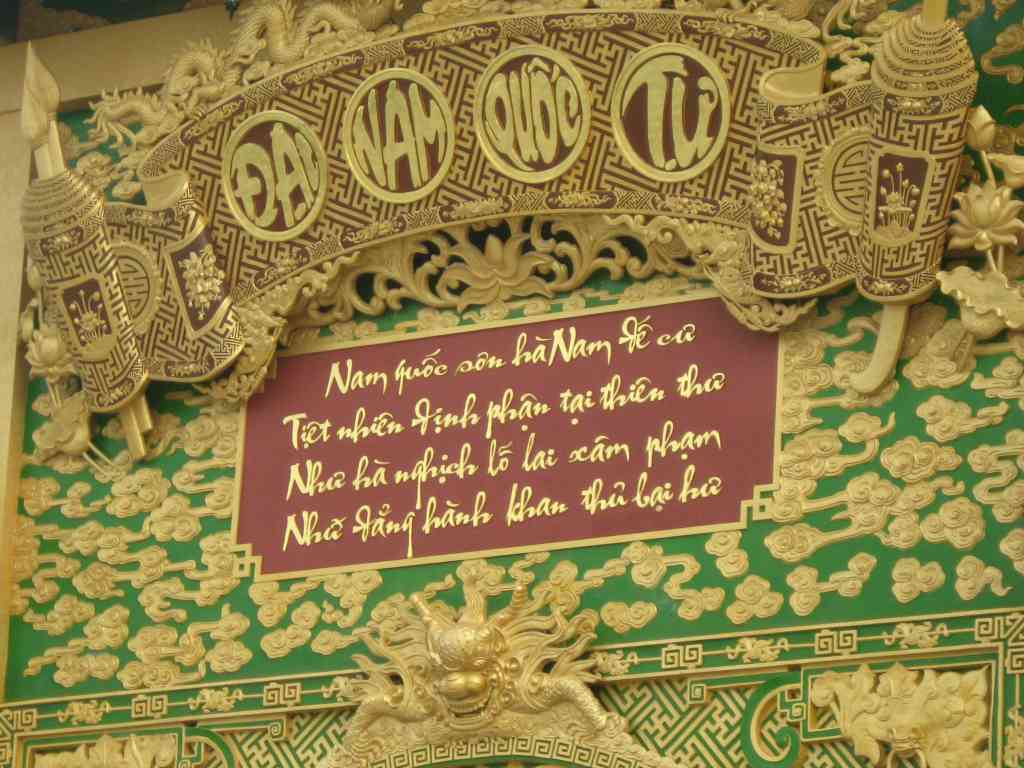 ĐẠI NAM QUỐC TỰ
Nam quốc sơn hà Nam đế cư
Tiệt nhiên định phận tại thiên thư
Như hà nghịch lỗ lai xâm phạm
Nhữ đẳng hành khan thủ bại hư